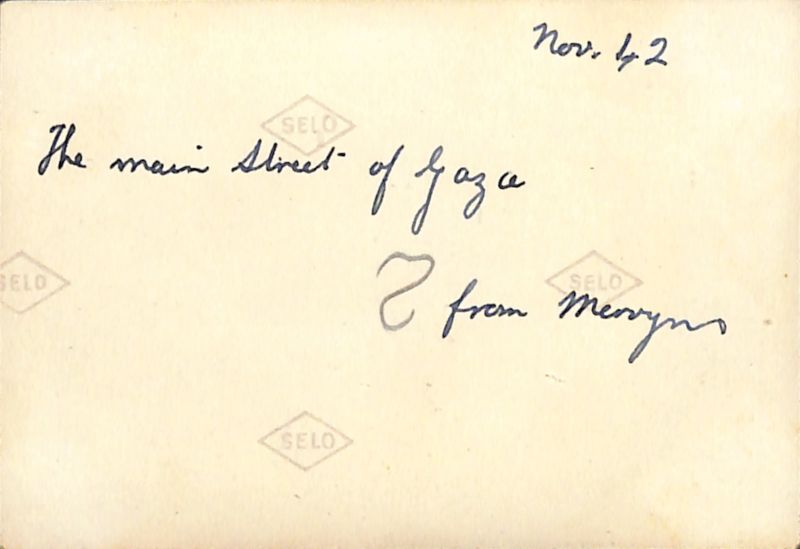 Nov. 42
SELO
The main Street of Gaza
SELO
SELO
from Mervyn
SELO